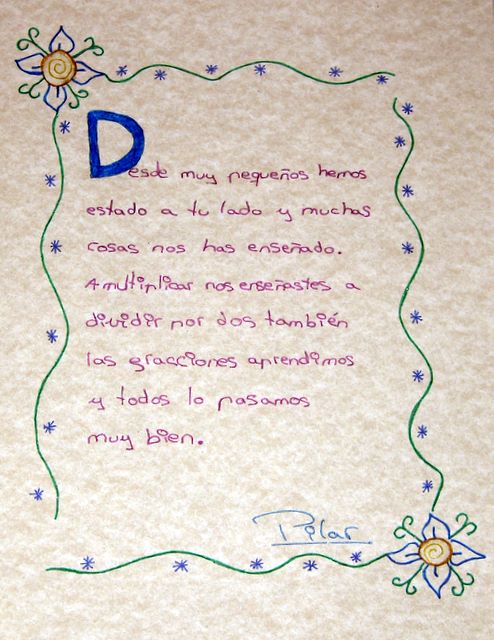 Desde muy pequeños hemos
estado a tu lado y muchas
cosas nos has enseñado.
A multiplicar nos enseñastes a
dividir por dos también
las gracciones aprendimos
y todos lo pasamos
muy bien.
Pilar